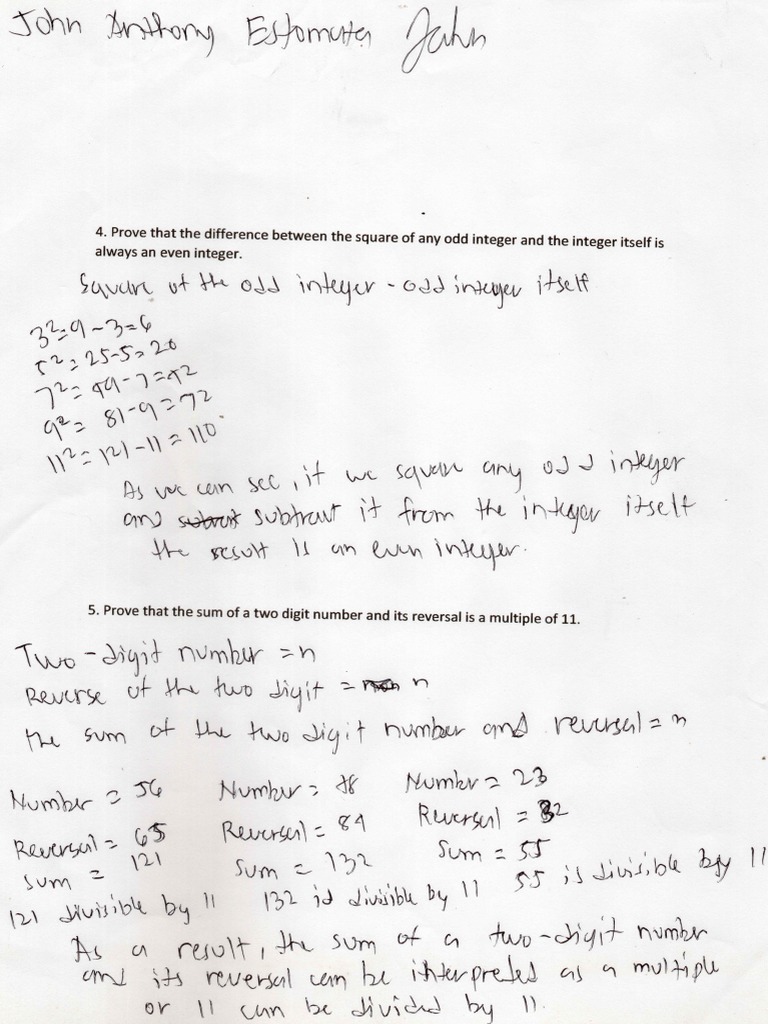 John Anthony John
4. Prove that the difference between the square of any odd integer and the integer itself is
always an even integer.
Square of the odd integer - odd integer itself
3²=9-3=6
5²=25-5=20
7²=49-7=42
9²=81-9=72
11²=121-11=110
As we can see, if we square any odd integer
and subtract it from the integer itself
the result is an even integer.
5. Prove that the sum of a two digit number and its reversal is a multiple of 11.
Two-digit number = n
Reverse of the two digit = n
the sum of the two digit number and reversal = n
Number = 56 Number = 48 Number = 23
Reversal = 65 Reversal = 84 Reversal = 32
Sum = 121 Sum = 132 Sum = 55
121 divisible by 11 132 is divisible by 11 55 is divisible by 11
As a result, the sum of a two-digit number
and its reversal can be interpreted as a multiple
or 11 can be divided by 11.